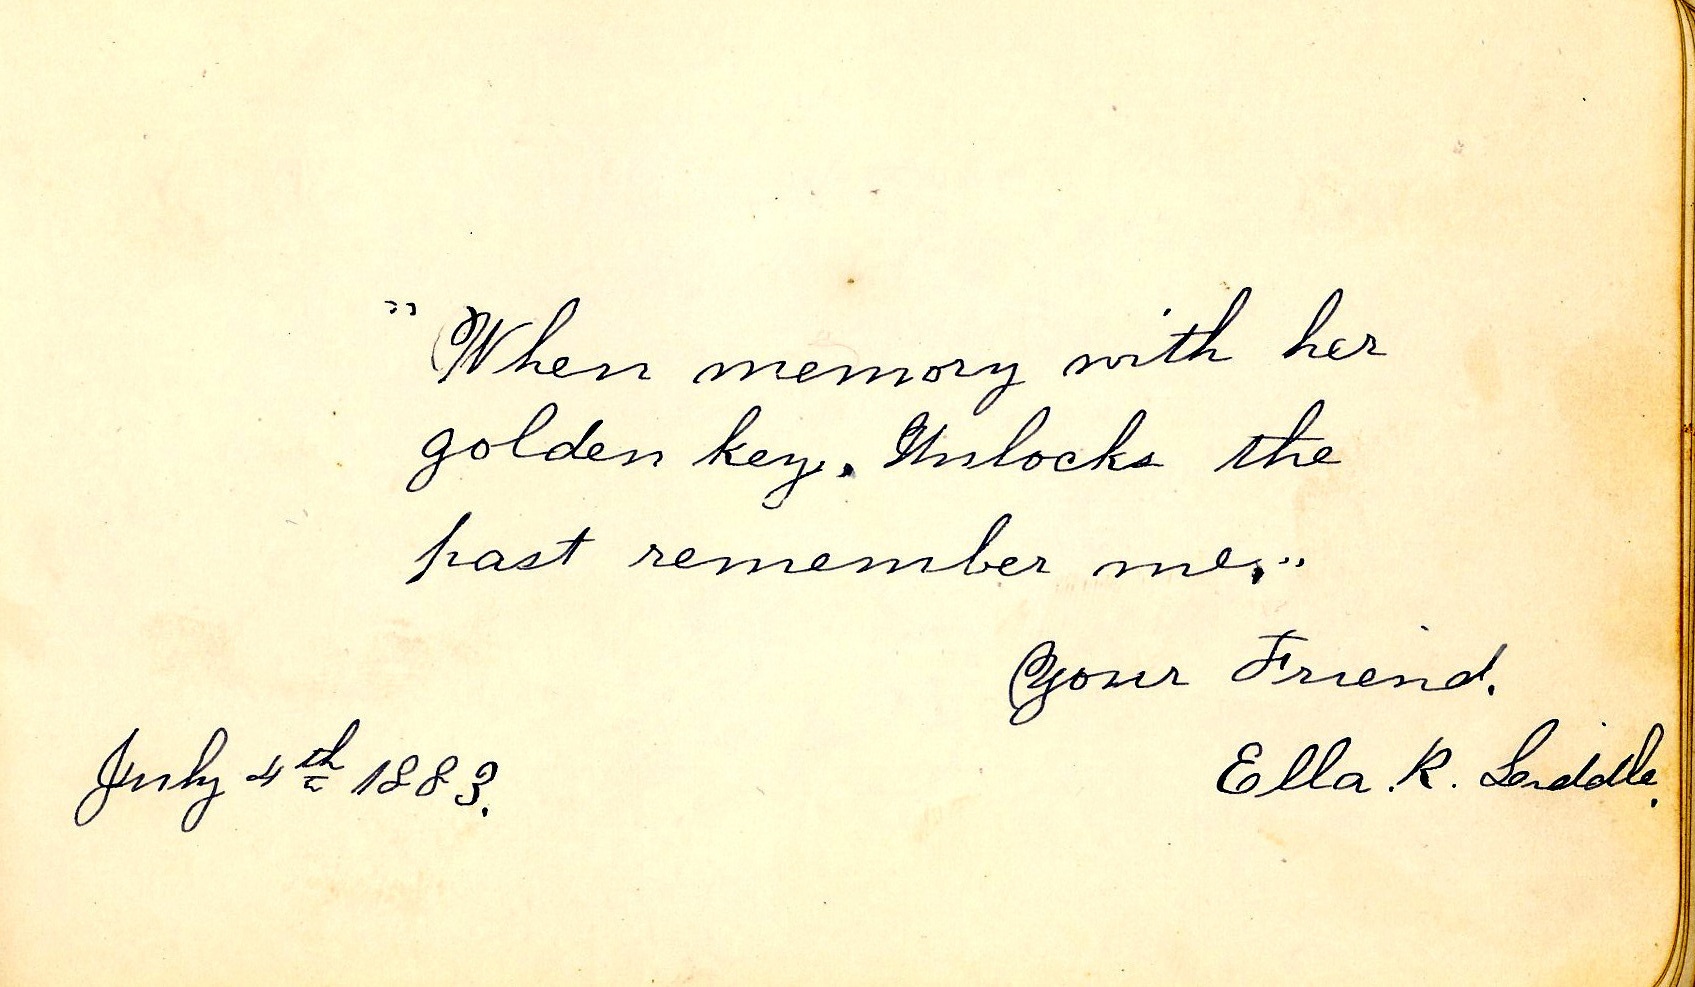 "When memory with her
golden key. Unlocks the
past remember me."
Your Friend.
July 4th 1883.
Ella. R. Liddle.